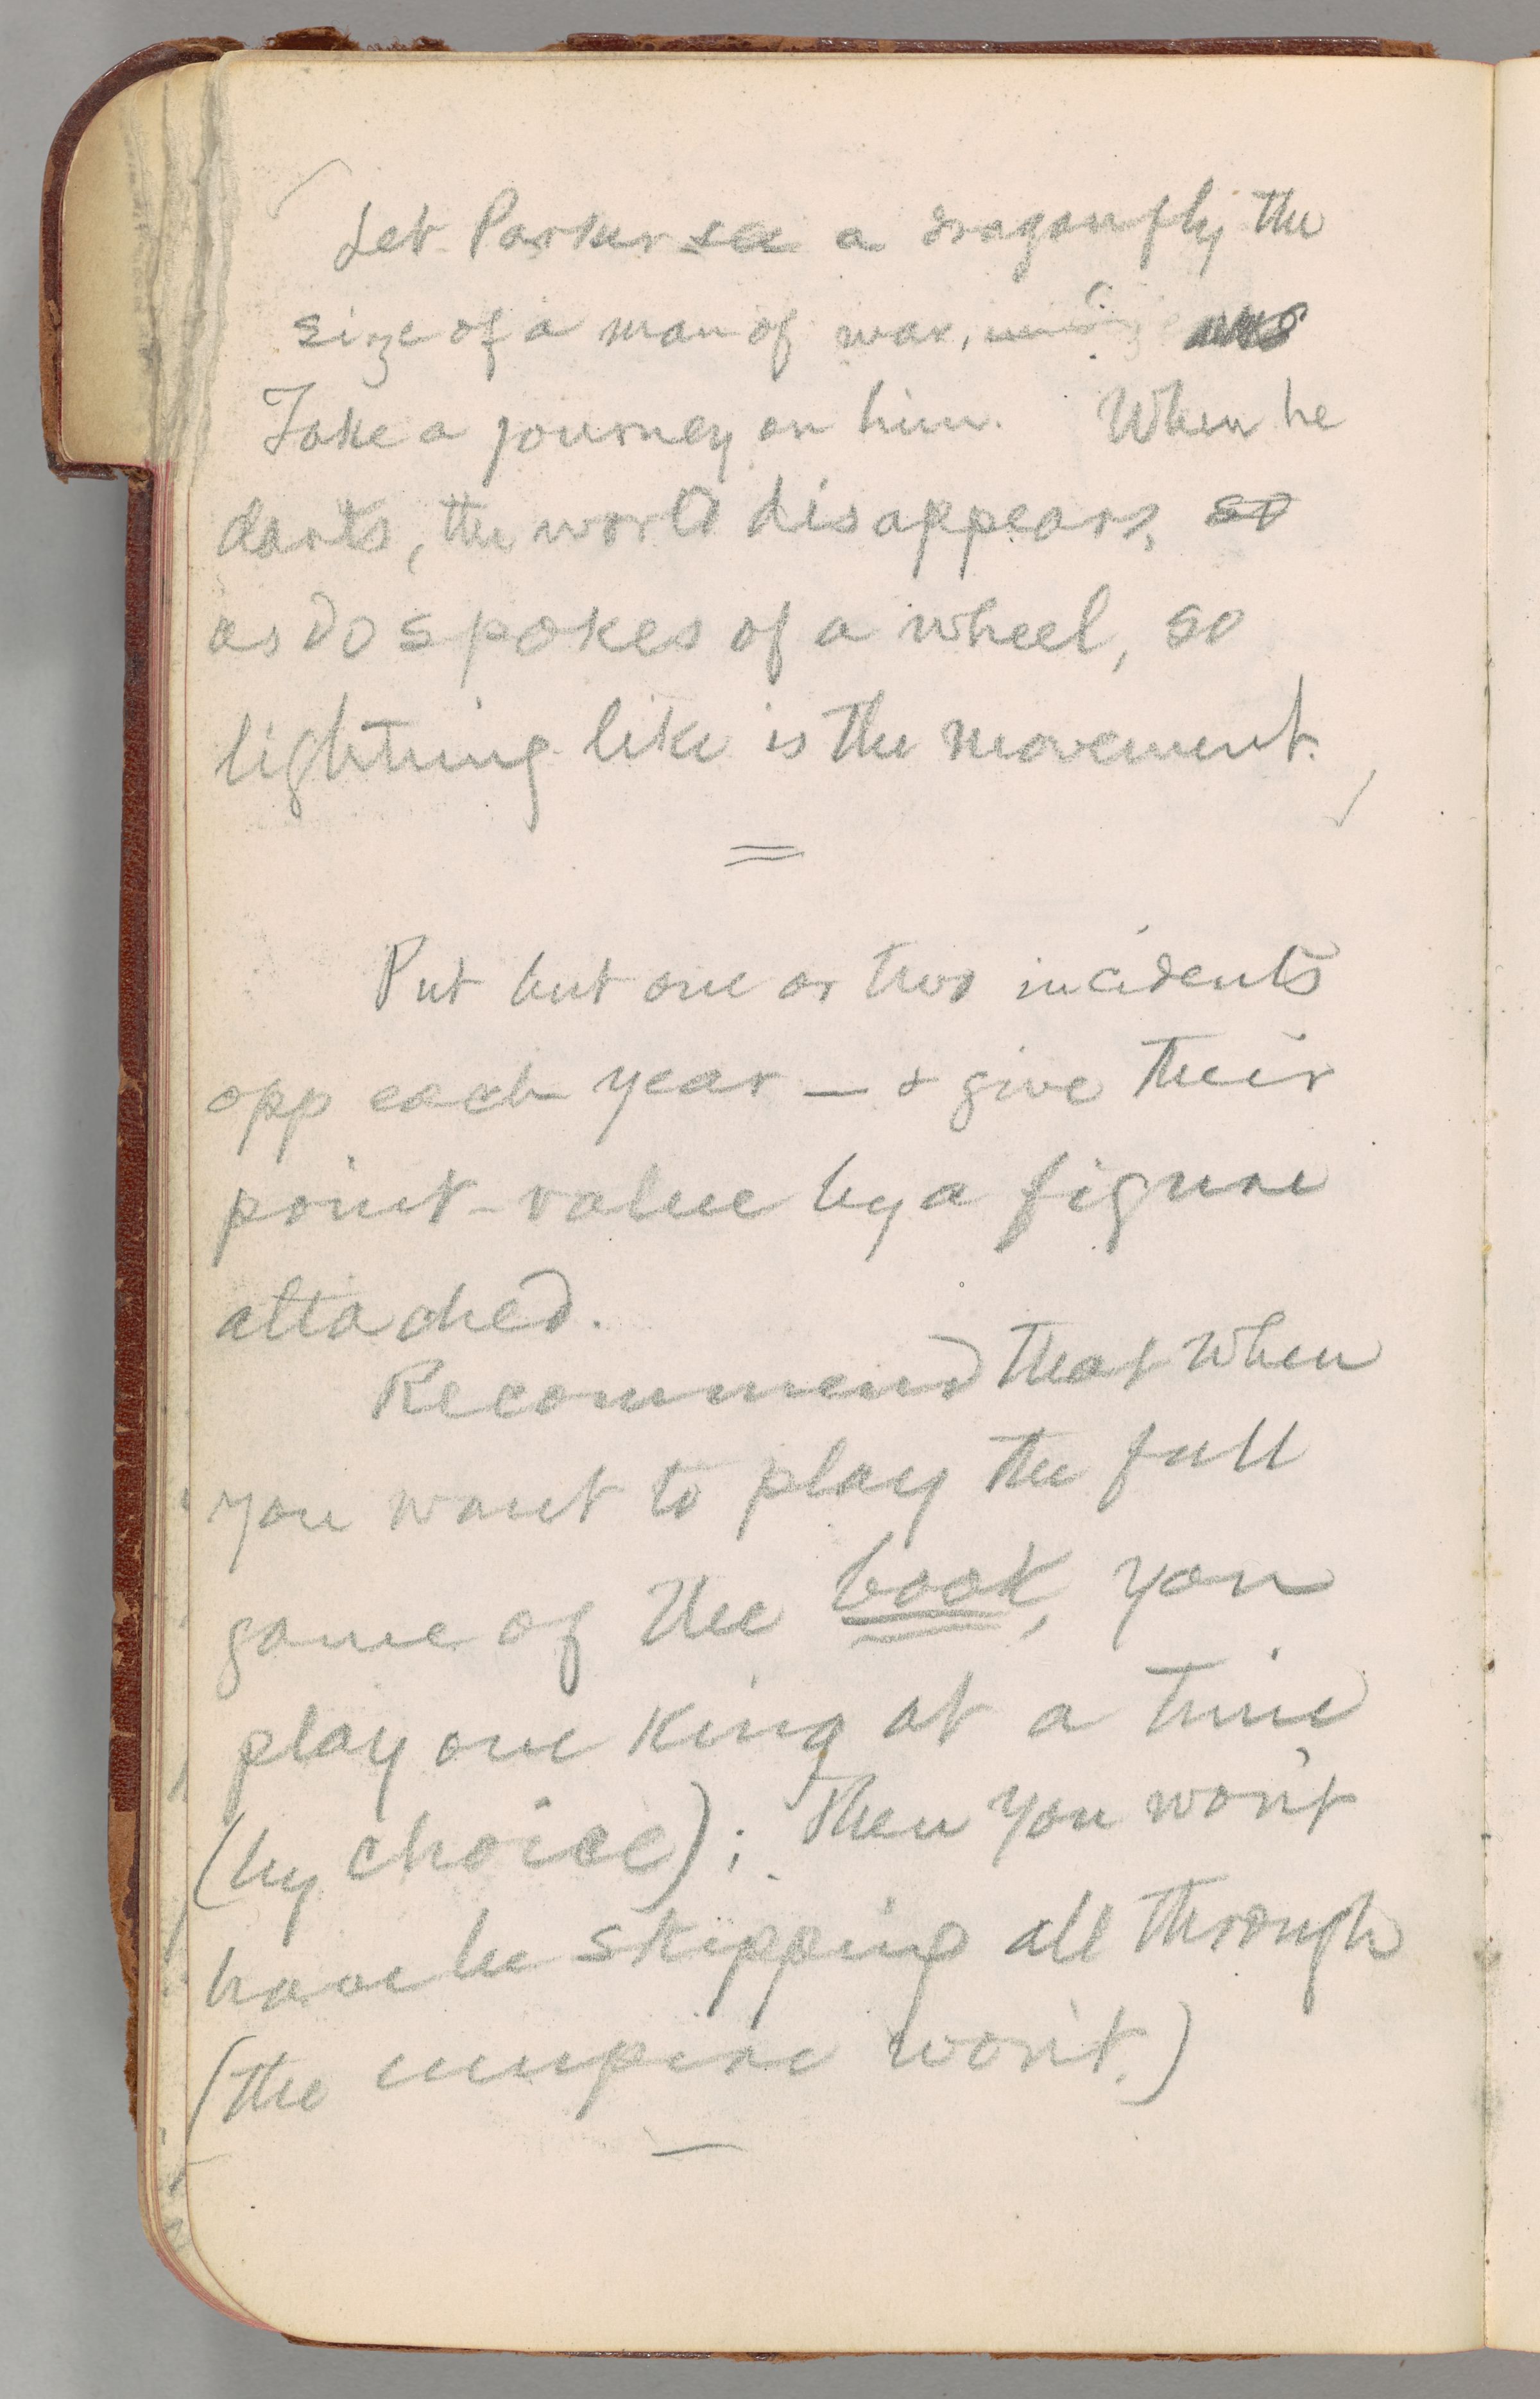 Let Parker see a dragonfly the
size of a man of war,
Take a journey on him. When he
darts, the world disappears, so
as do spokes of a wheel, so
lightning like is the movement.
Put but one or two incidents
opp each year — & give their
point-value by a figure
attached.
Recommend that when
you want to play the full
game of the book, you
play one king at a time
(by choice); then you won't
have be skipping all through
(the umpire won't.)